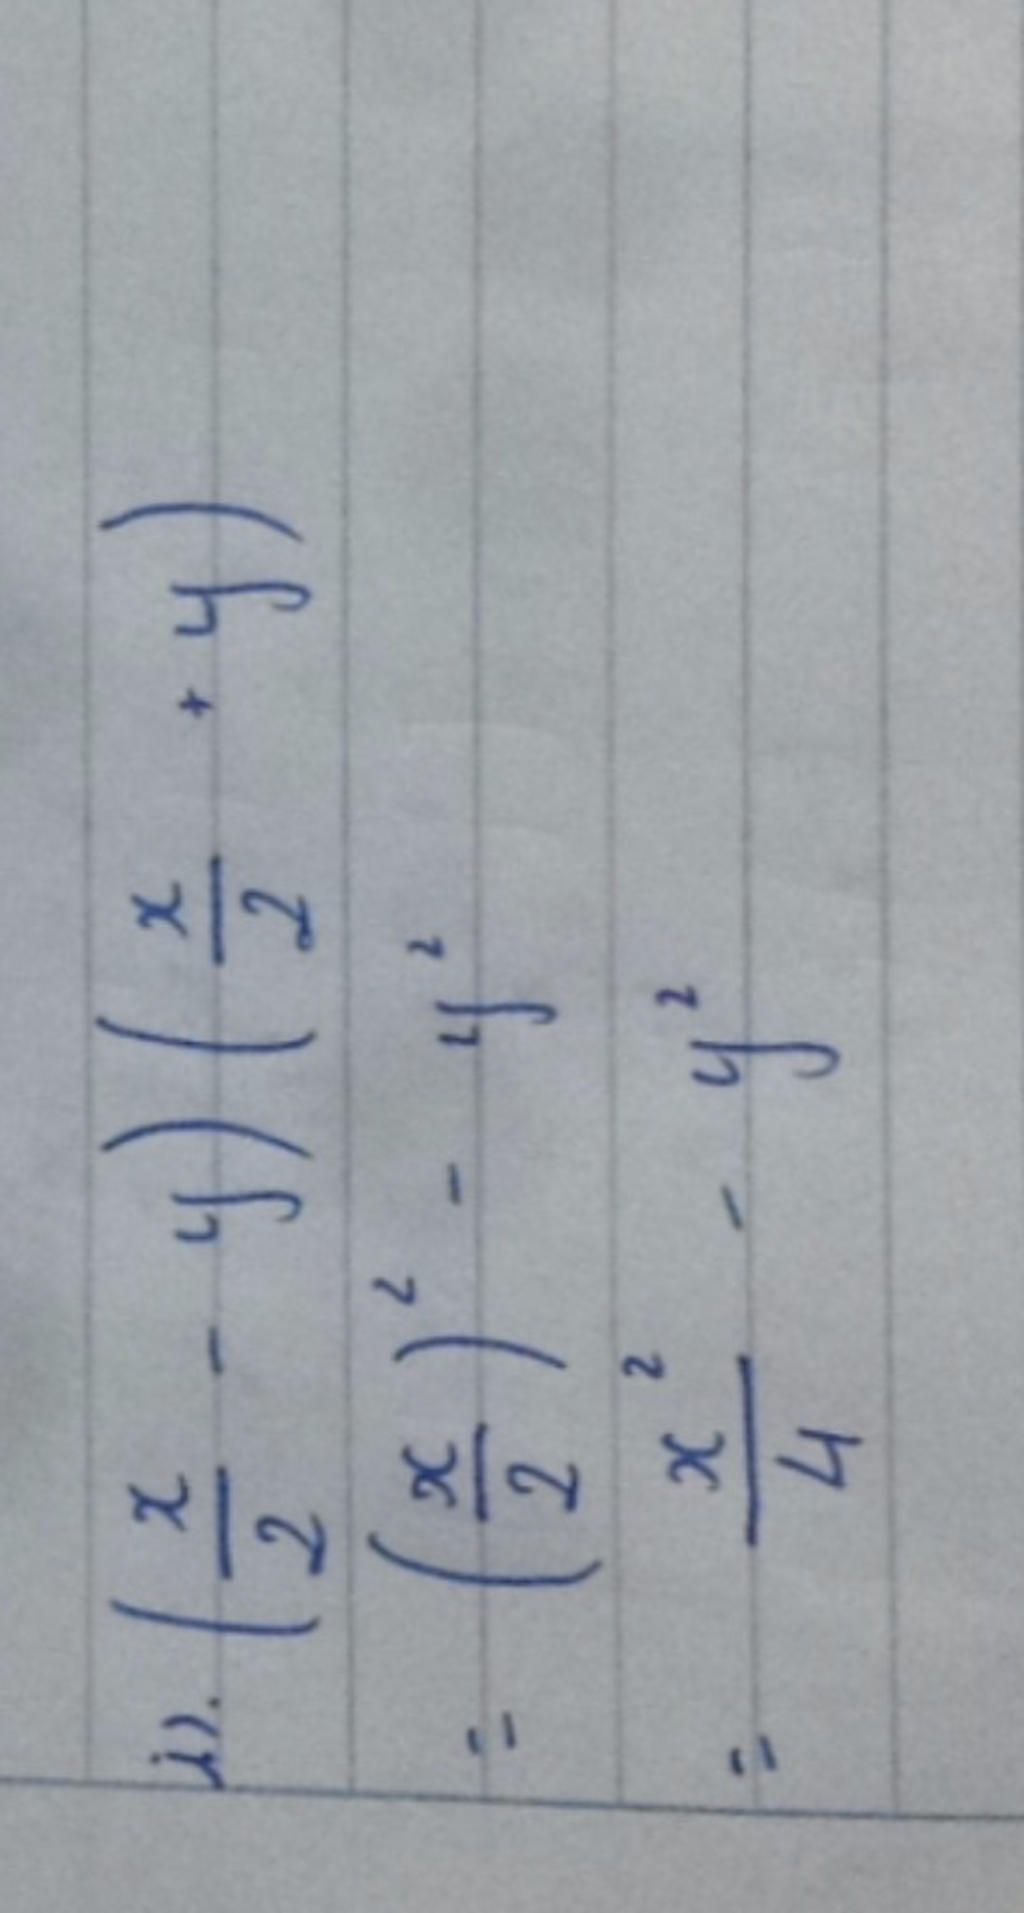 i). (x/2 - y) (x/2 + y)
= (x/2)² - y²
= x²/4 - y²